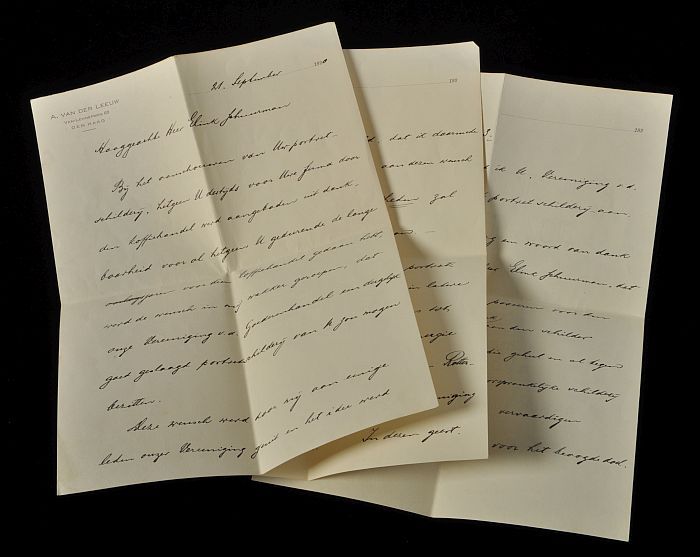 A. VAN DER LEEUW
DEN HAAG
21. September 1930
Hooggeachte Heer Elink Schuurman
Bij het aanschouwen van Uw portret-
schilderij, hetgeen U destijds voor Uwe firma door
den koffiehandel werd aangeboden uit dank-
baarheid voor al hetgeen U gedurende de lange
voor den koffiehandel gedaan hebt,
werd de wensch in mij wakker geroepen, dat
onze Vereeniging v.d. Goederenhandel een dergelijk
goed geslaagd portretschilderij van U zou mogen
bezitten.
Deze wensch werd door mij aan eenige
leden onzer Vereeniging geuit en het idee werd
193
dat it daarmede
aan deren wensch
leden zal
portret
latere
tot,
energie
Rotter-
In dezen geest.
193
ik U, Vereeniging v.d.
portretschilderij aan.
en woord van dank
Elink Schuurman, dat
poseeren voor den
den schilder
die geheel en al tegen
oorspronkelijke schilderij
vervaardigen
voor het beoogde doel.